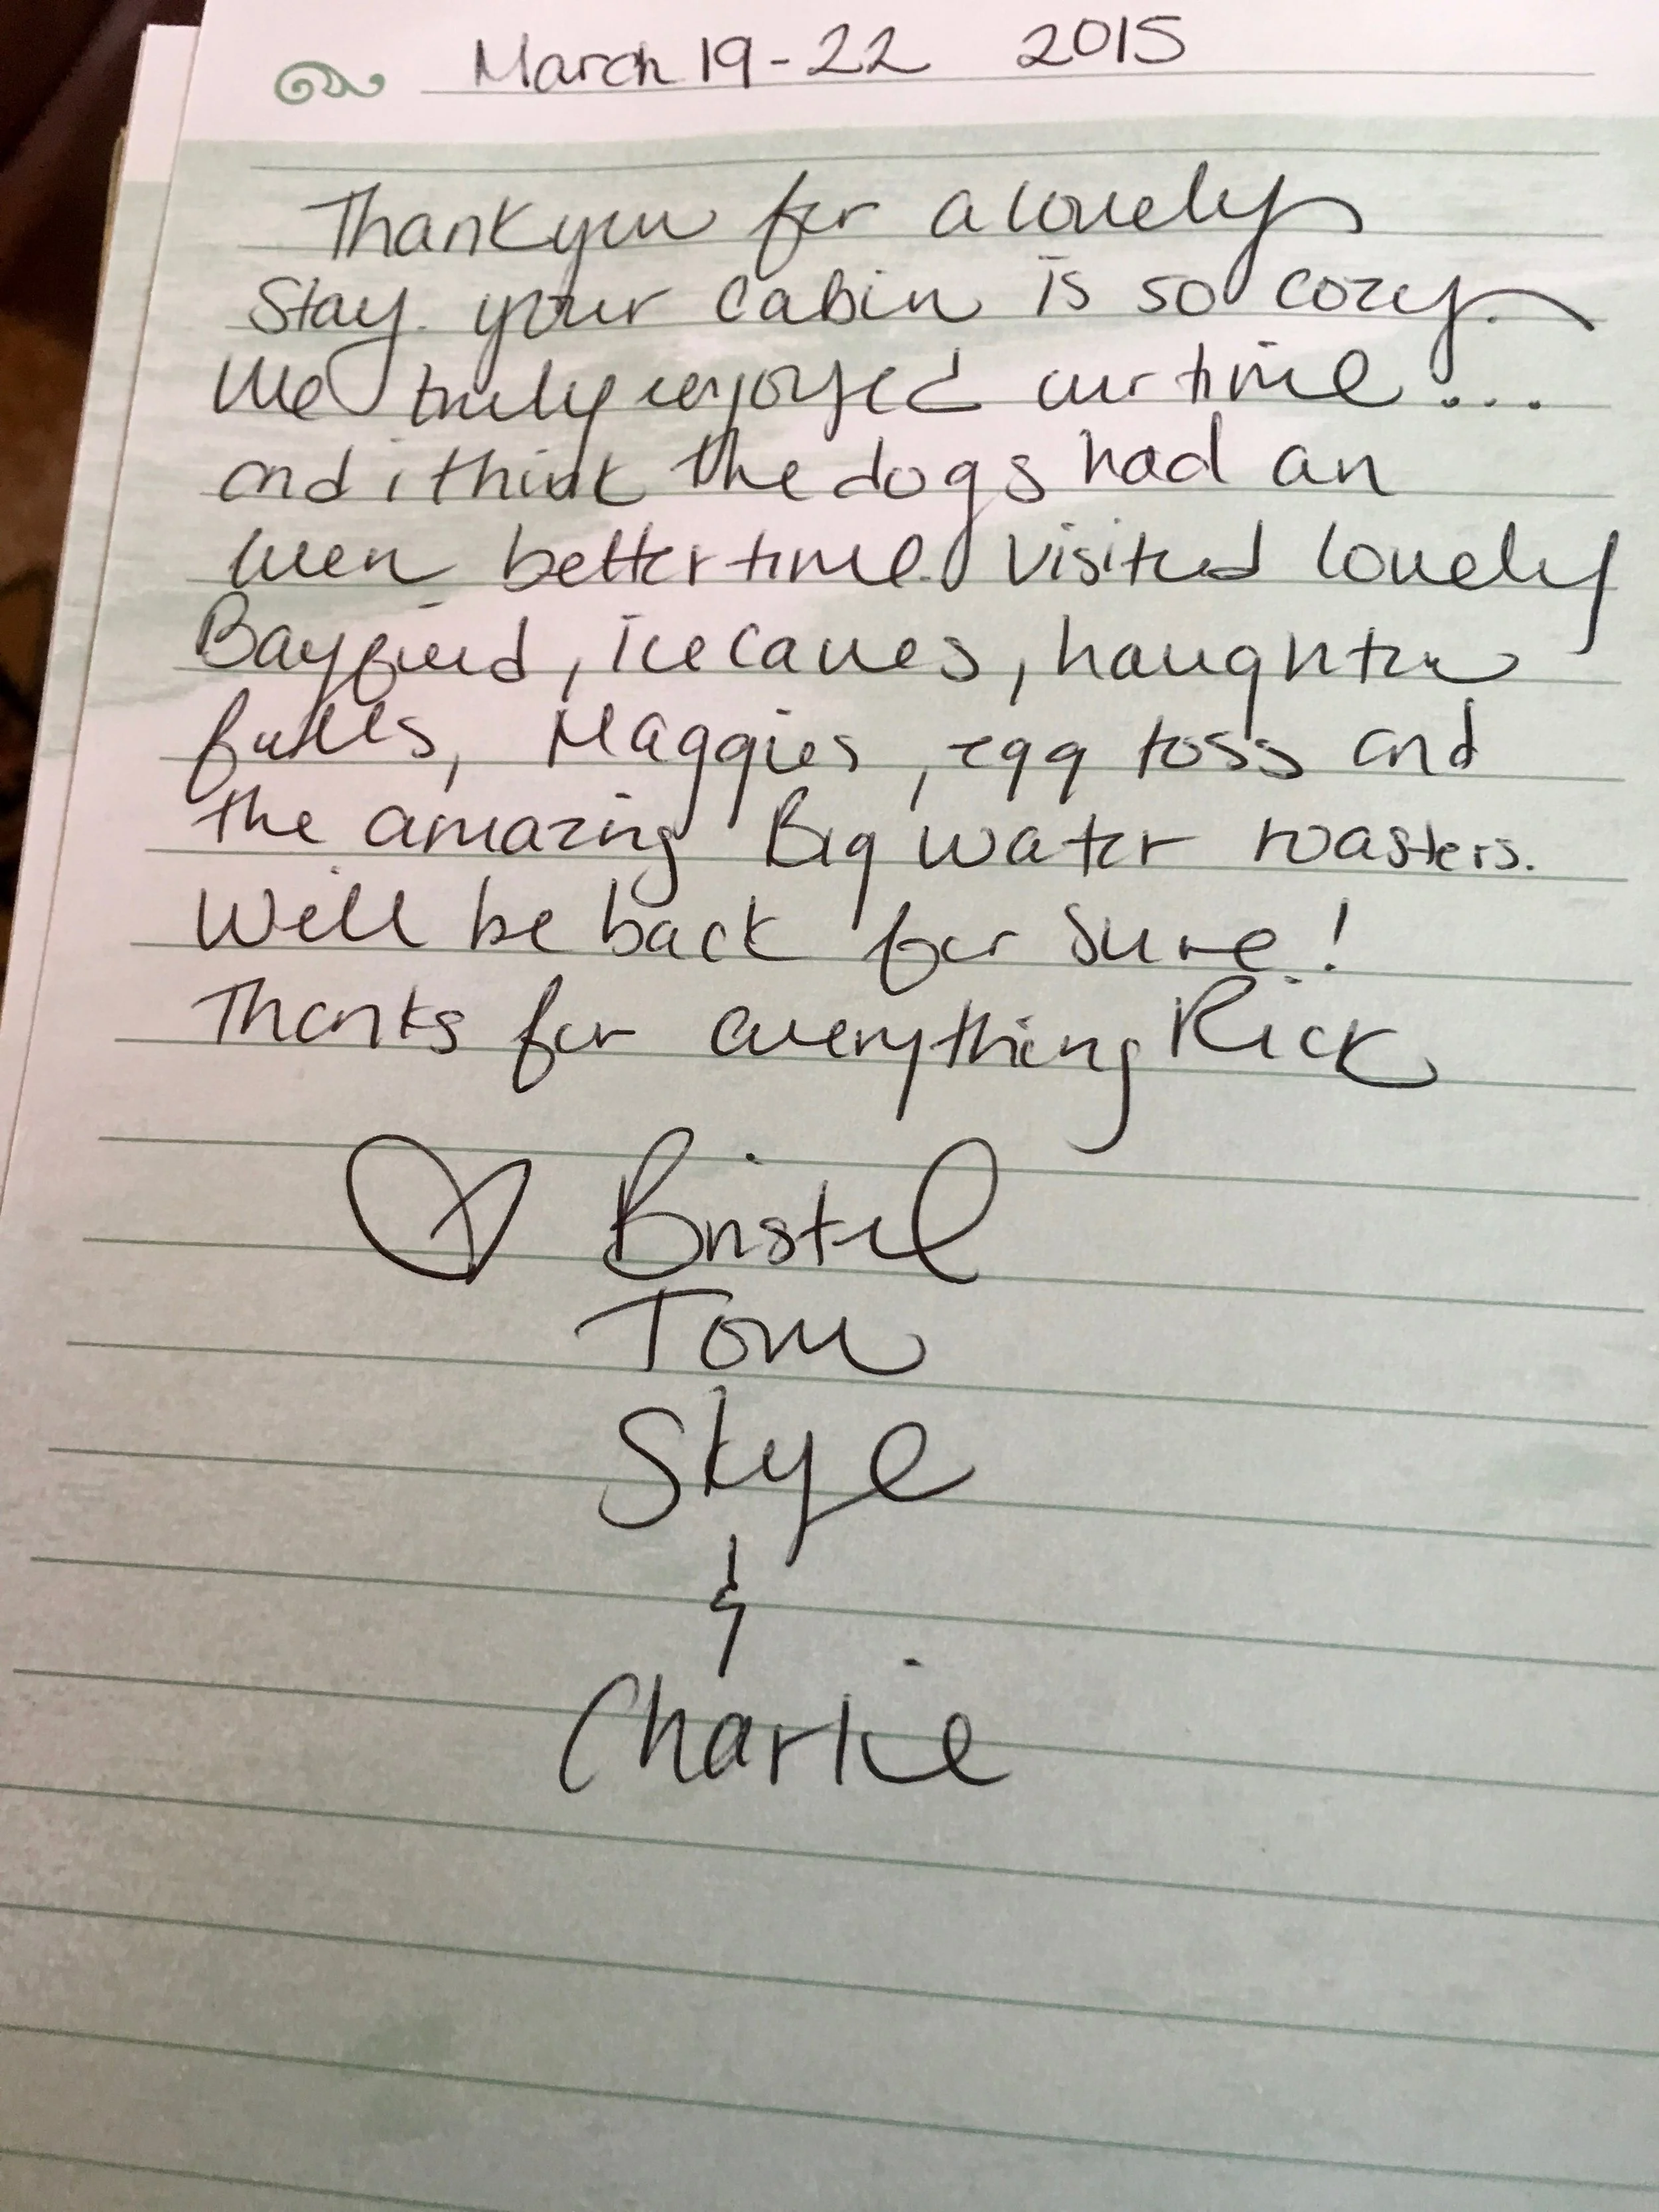 March 19-22 2015
Thank you for a lovely
Stay. your cabin is so cozy.
We truly enjoyed our time...
and i think the dogs had an
even better time. Visited lovely
Bayfield, ice caves, haughton
falls, Maggies, egg toss and
the amazing Big water roasters.
Will be back for sure!
Thanks for everything Rick
♡ Bristel
Tom
Skye
&
Charlie